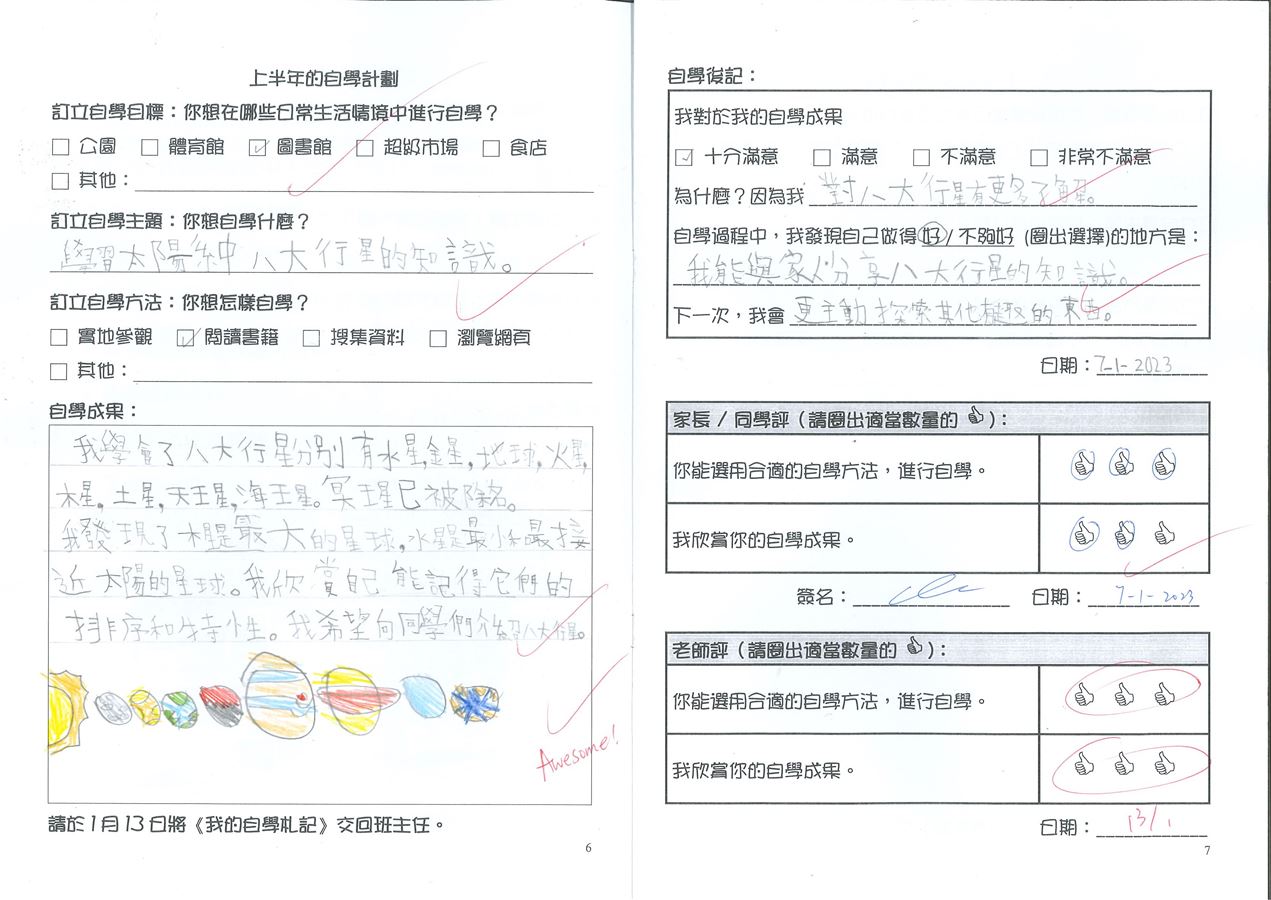 上半年的自學計劃
訂立自學目標：你想在哪些日常生活情境中進行自學？
□ 公園 □ 體育館 ☑ 圖書館 □ 超級市場 □ 食店
□ 其他：
訂立自學主題：你想自學什麼？
學習太陽糸中八大行星的知識。
訂立自學方法：你想怎樣自學？
□ 實地參觀 ☑ 閱讀書籍 □ 搜集資料 □ 瀏覽網頁
□ 其他：
自學成果：
我學會了八大行星分別有水星,金星,地球,火星,
木星,土星,天王星,海王星。冥王星已被除名。
我發現了木星是最大的星球,水星是最小和最接
近太陽的星球。我欣賞自己能記得它們的
排序和特性。我希望向同學們介紹八大行星。
Awesome!
請於1月13日將《我的自學札記》交回班主任。
6
自學後記：
我對於我的自學成果
☑ 十分滿意 □ 滿意 □ 不滿意 □ 非常不滿意
為什麼？因為我對八大行星有更多了解。
自學過程中，我發現自己做得好/不夠好 (圈出選擇)的地方是：
我能與家人分享八大行星的知識。
下一次，我會更主動探索其他有趣的東西。
日期：7-1-2023
家長 / 同學評（請圈出適當數量的 ）：
你能選用合適的自學方法，進行自學。
我欣賞你的自學成果。
簽名： 日期：7-1-2023
老師評（請圈出適當數量的 ）：
你能選用合適的自學方法，進行自學。
我欣賞你的自學成果。
日期：13/1
7